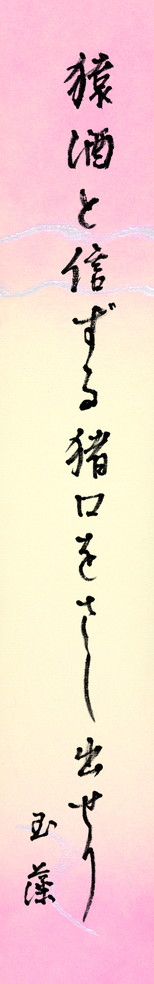 猿酒と信ずる猪口をさし出せり
玉藻